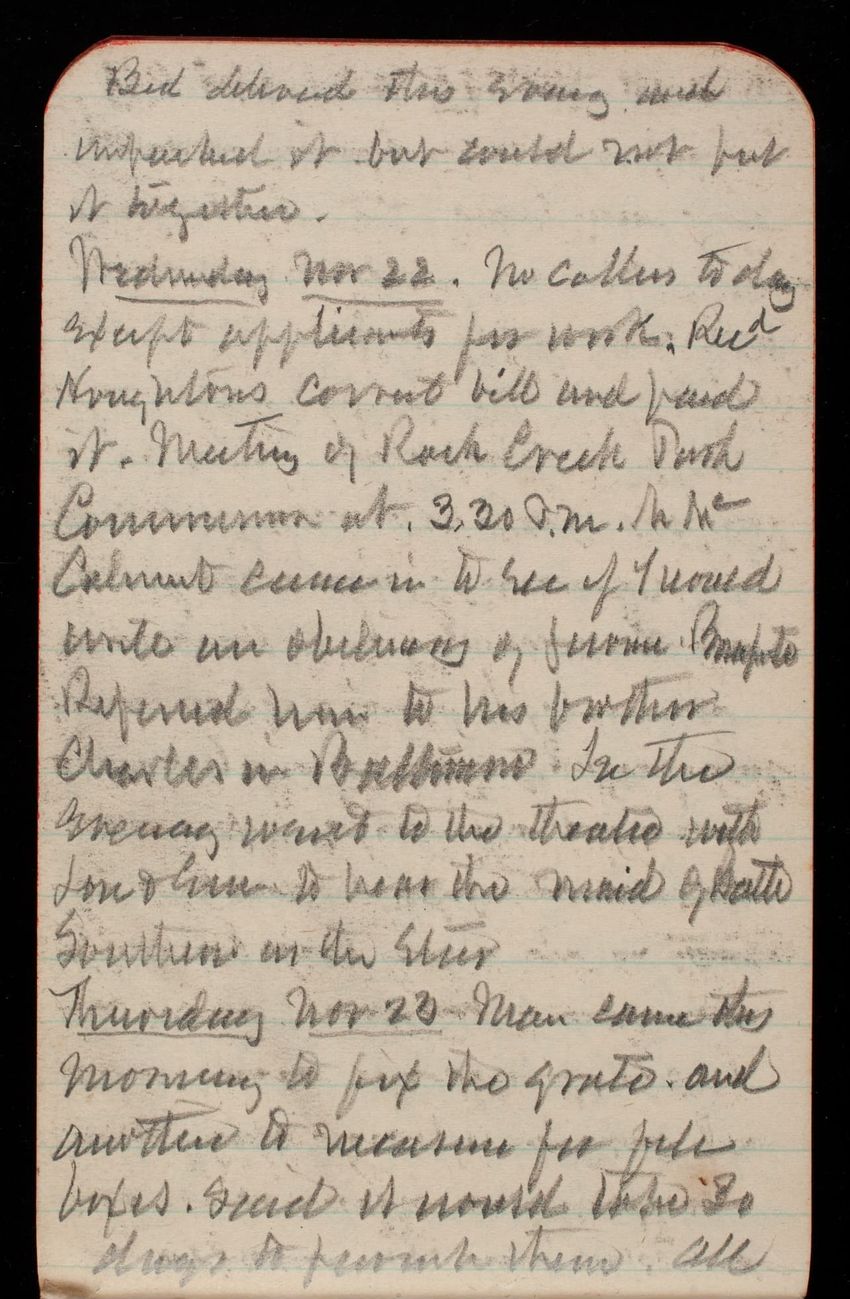 Bed delivered this evening and
unpacked it but could not put
it together.
Wednesday Nov 22. No callers to day
except applicants for work. Recd
Noughtons correct bill and paid
it. Meeting of Rock Creek Park
Commission at 3.30 P.M. Mc
Calmont came in to see if I would
write an obituary of Jerome Bonaparte
Referred him to his brother
Charles in Baltimore In the
evening went to the theatre with
to hear the maid of Bath
Southern as the
Thursday Nov 23 Man came this
morning to fix the grate and
another to measure for file
boxes. Said it would take 30
days to furnish them. All